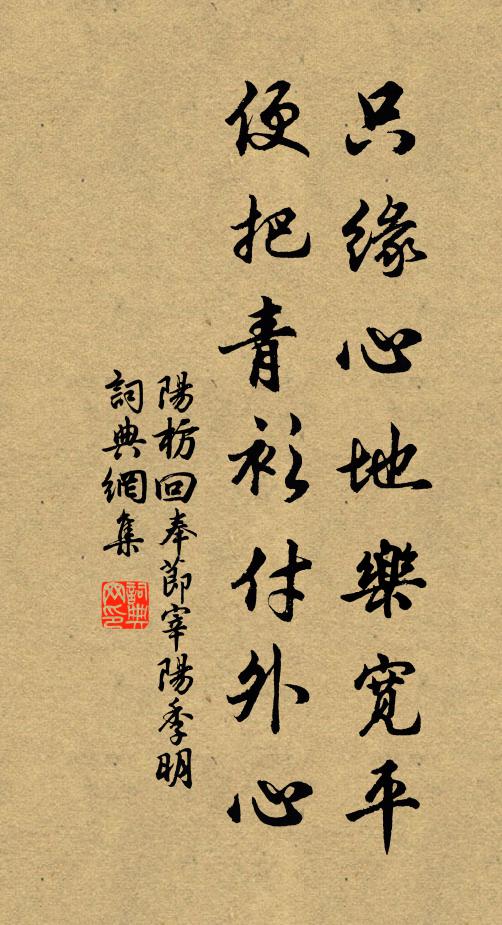 只緣心地樂寬平
便把青衫付外心
陽枋回奉節宰陽季明
詞典網集
詞典網印